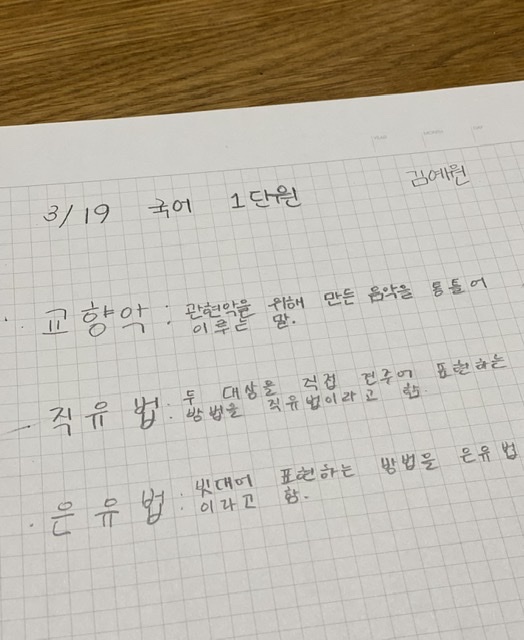 김예원
3/19 국어 1단원
· 교향악 : 관현악을 위해 만든 음악을 통틀어
이루는 말.
- 직유법 : 두 대상을 직접 견주어 표현하는
방법을 직유법이라고 함.
· 은유법 : 빗대어 표현하는 방법을 은유법
이라고 함.